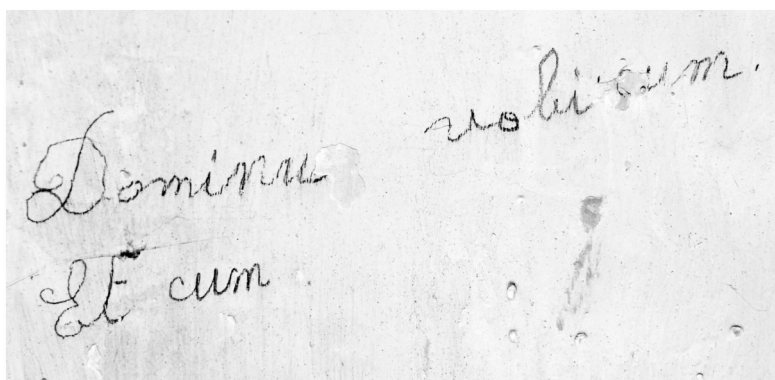 Dominu vobi cum.
Et cum